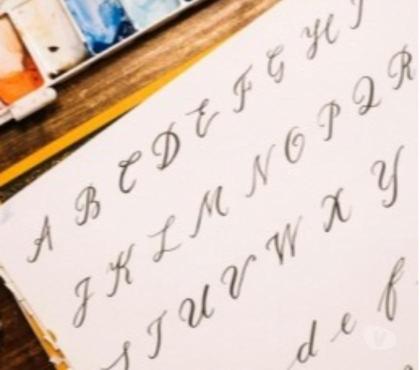 A B C D E F G H I
J K L M N O P Q R
S T U V W X Y
d e f